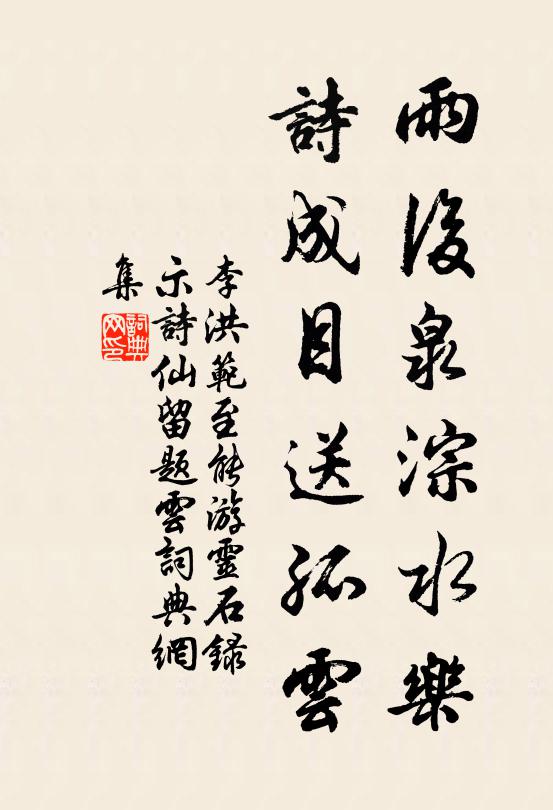 雨後泉淙水樂
詩成目送孤雲
李洪範至能游靈石録
示詩仙留題雲詞典網
集
詞典網印